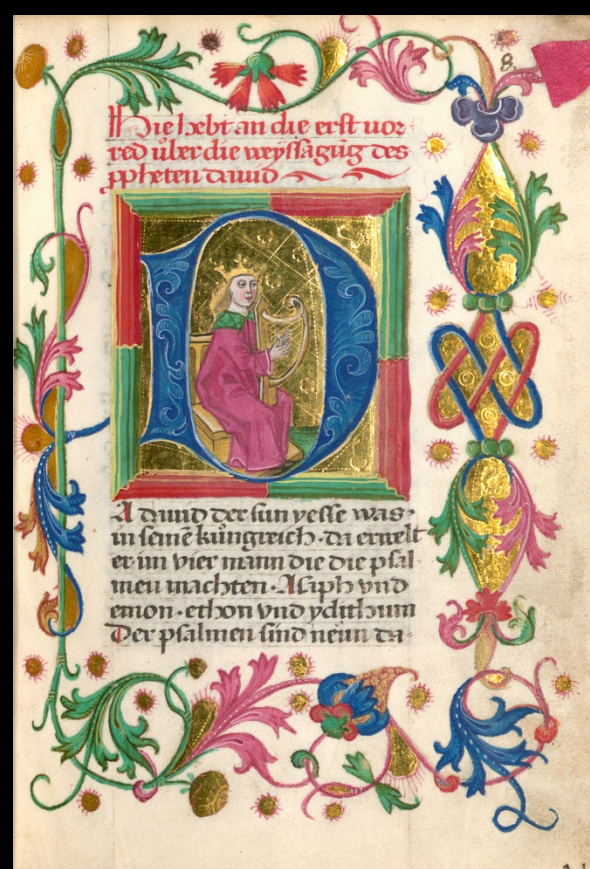 8
Hie hebt an die erst vor
red über die weyssagūg des
ppheten dauid
D
A dauid der sun yesse was
in seinē küngreich · da erwelt
er im vier mann die die psal
men machten · Asaph vnd
emon · ethon vnd ydithum
Der psalmen sind neün da⸗